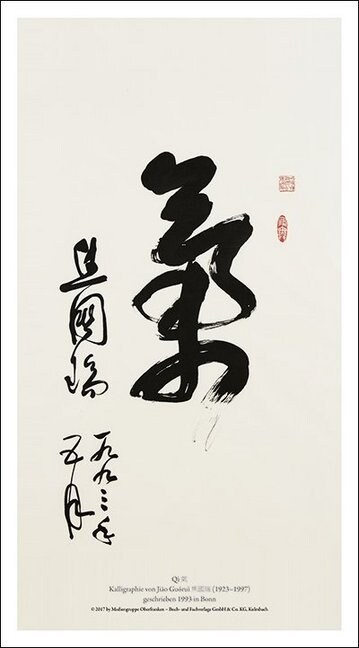 氣
焦國瑞
一九九三年
五月
Qì 氣
Kalligraphie von Jiāo Guóruì 焦國瑞 (1923–1997)
geschrieben 1993 in Bonn
© 2017 by Mediengruppe Oberfranken – Buch- und Fachverlage GmbH & Co. KG, Kulmbach